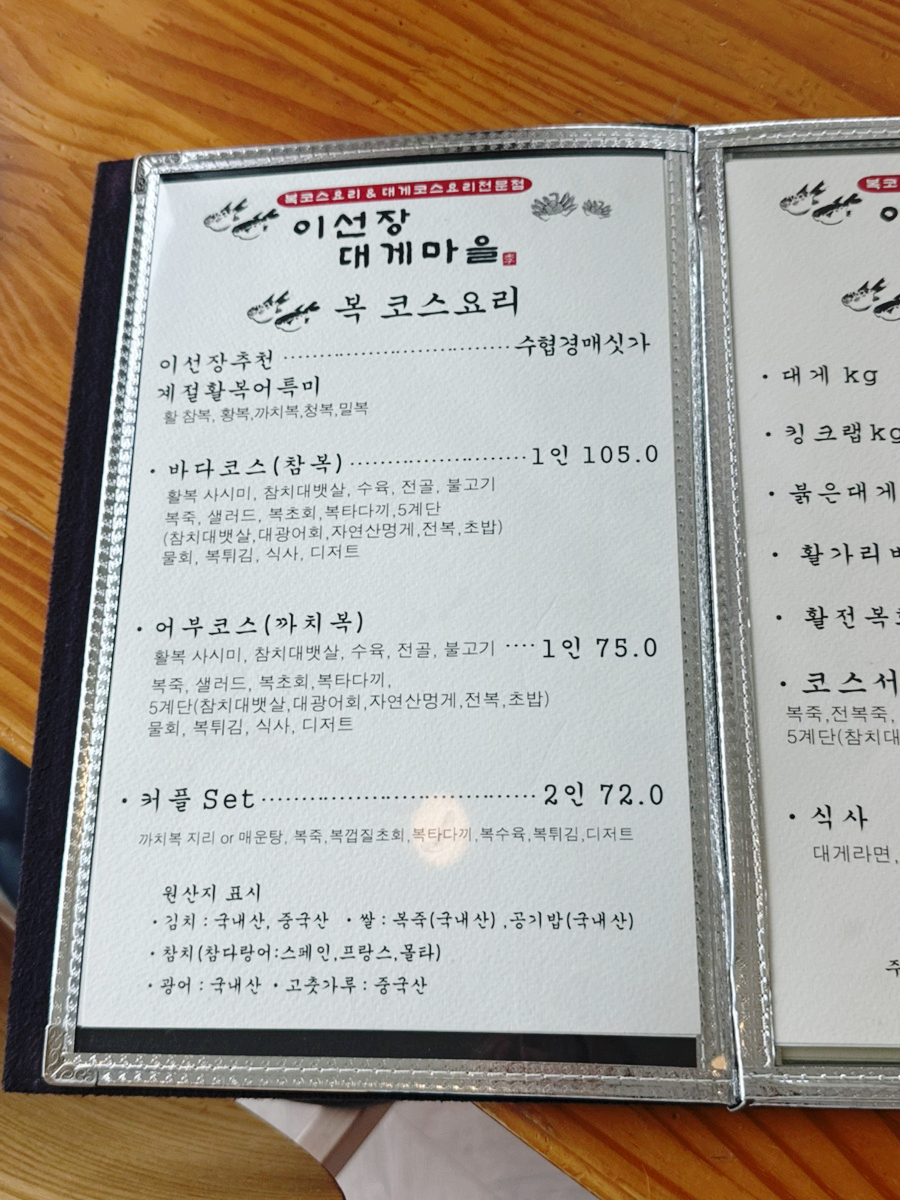 복코스요리 & 대게코스요리전문점
이선장
대게마을
복 코스요리
이선장추천 수협경매싯가
계절활복어특미
활 참복, 황복,까치복,청복,밀복
· 바다코스(참복) 1인 105.0
활복 사시미, 참치대뱃살, 수육, 전골, 불고기
복죽, 샐러드, 복초회,복타다끼,5계단
(참치대뱃살,대광어회,자연산멍게,전복,초밥)
물회, 복튀김, 식사, 디저트
· 어부코스(까치복)
활복 사시미, 참치대뱃살, 수육, 전골, 불고기 ····1인 75.0
복죽, 샐러드, 복초회,복타다끼,
5계단(참치대뱃살,대광어회,자연산멍게,전복,초밥)
물회, 복튀김, 식사, 디저트
· 커플 Set 2인 72.0
까치복 지리 or 매운탕, 복죽,복껍질초회,복타다끼,복수육,복튀김,디저트
원산지 표시
· 김치 : 국내산, 중국산 · 쌀 : 복죽(국내산) ,공기밥(국내산)
· 참치(참다랑어:스페인,프랑스,몰타)
· 광어 : 국내산 · 고춧가루 : 중국산
복코
· 대게 kg
· 킹크랩kg
· 붉은대게
· 활가리
· 활전복
· 코스
복죽,전복죽,
5계단(참치대
· 식사
대게라면,